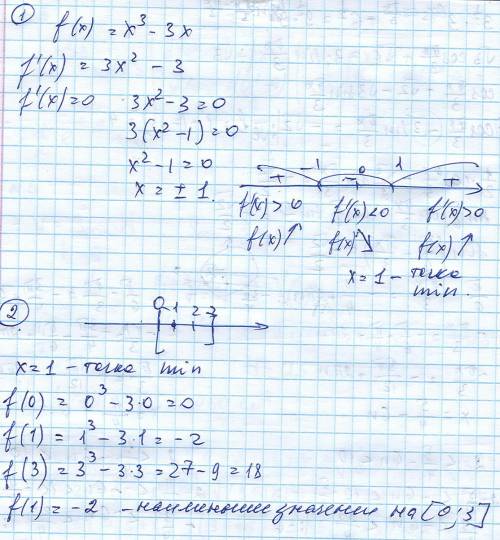 1 f(x) = x³ - 3x
f'(x) = 3x² - 3
f'(x) = 0 3x² - 3 = 0
3(x² - 1) = 0
x² - 1 = 0
x = ± 1.
-1 0 1
+ - +
f'(x) > 0 f'(x) < 0 f'(x) > 0
f(x) ↑ f(x) ↘ f(x) ↑
x = 1 - точка
min.
2
0 1 2 3
x = 1 - точка min
f(0) = 0³ - 3·0 = 0
f(1) = 1³ - 3·1 = -2
f(3) = 3³ - 3·3 = 27 - 9 = 18
f(1) = -2 - наименьшее значение на [0; 3]